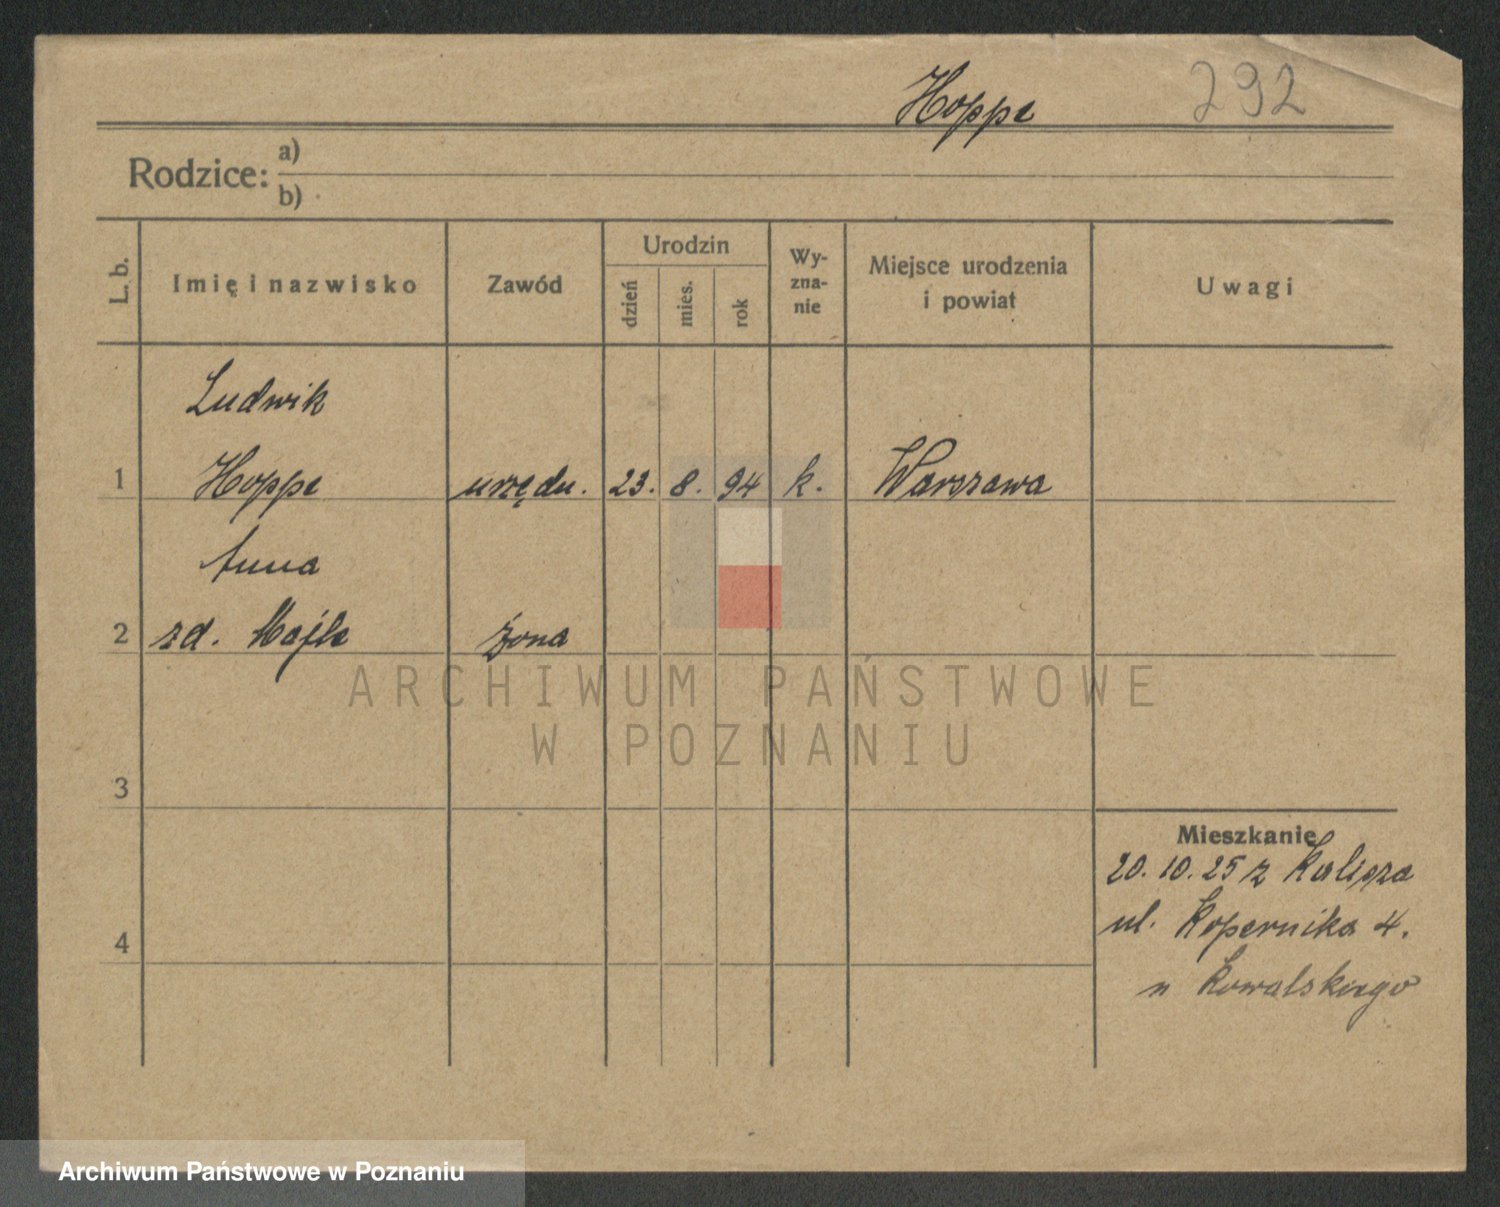 Hoppe 292
Rodzice: a)
b)
L. b.
Imię i nazwisko
Zawód
Urodzin
dzień
mies.
rok
Wy-
zna-
nie
Miejsce urodzenia
i powiat
Uwagi
Ludwik
1 Hoppe urzędn. 23. 8. 94 k. Warszawa
Anna
2 zd. żona
3
4
Mieszkanie
20. 10. 25 z Kalisza
ul. Kopernika 4.
u Kowalskiego
ARCHIWUM PAŃSTWOWE
W POZNANIU
Archiwum Państwowe w Poznaniu